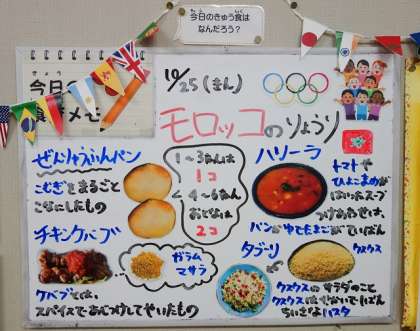 今日のきゅう食は
なんだろう？
きょう
今日の
食
メモ
10/25(きん)
モロッコのりょうり
ぜんりゅうふんパン
こむぎをまるごと
こなにしたもの
1～3ねんは
1コ
4～6ねん
おとなは
2コ
ハリーラ
トマトや
ひよこまめが
はいったスープ
つけあわせは、
パンかゆでたまごがていばん
チキンケバブ
ガラム
マサラ
ケバブとは、
スパイスであじつけしてやいたもの
タブーリ
クスクス
クスクスのサラダのこと
クスクスはせかいでいちばん
ちいさなパスタ